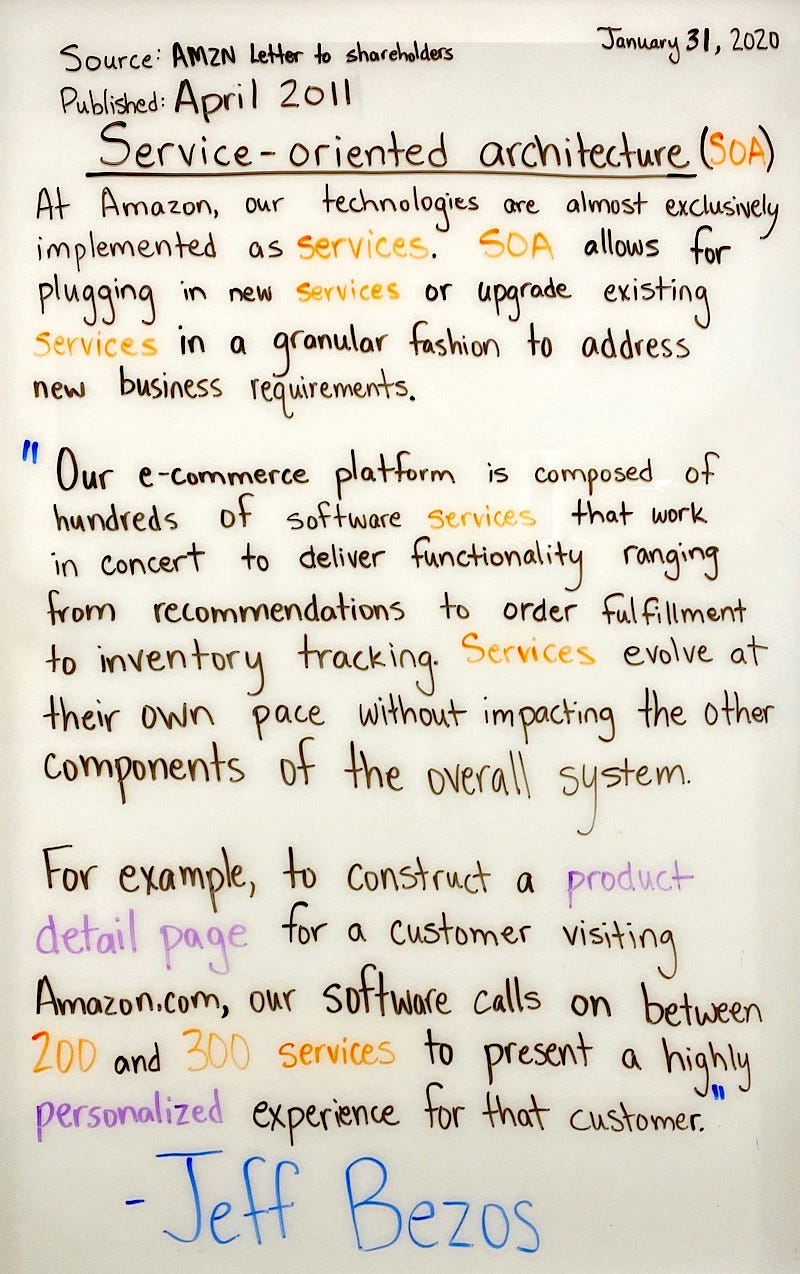 January 31, 2020
Source: AMZN Letter to shareholders
Published: April 2011
Service-oriented architecture (SOA)
At Amazon, our technologies are almost exclusively
implemented as services. SOA allows for
plugging in new services or upgrade existing
services in a granular fashion to address
new business requirements.
" Our e-commerce platform is composed of
hundreds of software services that work
in concert to deliver functionality ranging
from recommendations to order fulfillment
to inventory tracking. Services evolve at
their own pace without impacting the other
components of the overall system.
For example, to construct a product
detail page for a customer visiting
Amazon.com, our software calls on between
200 and 300 services to present a highly
personalized experience for that customer."
- Jeff Bezos